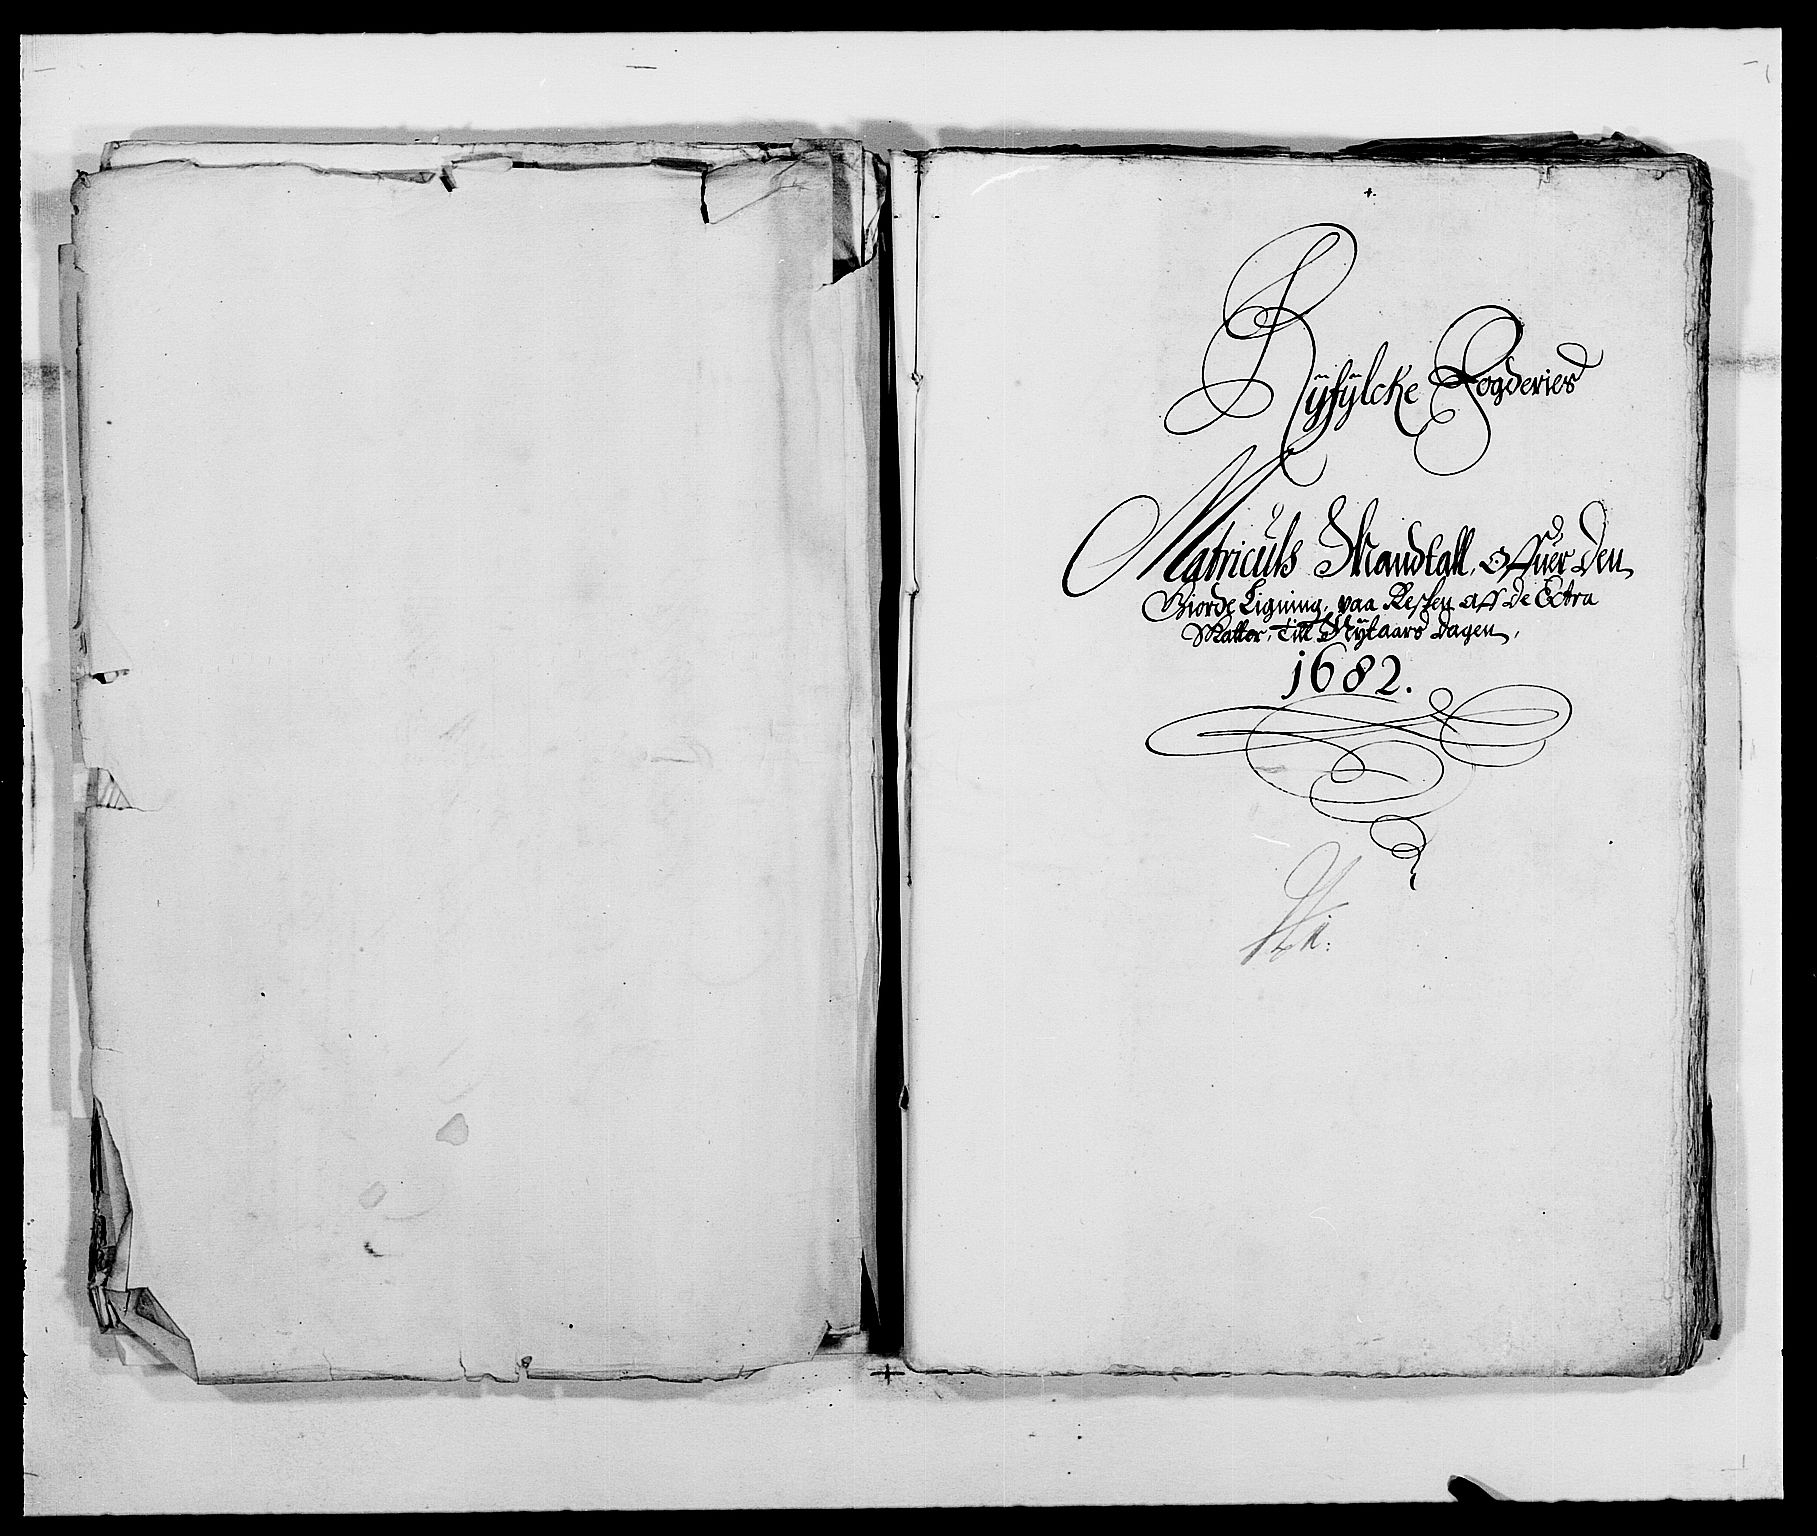 Ryfylcke Fogderies
Matriculs Mandtall, offuer den
Giorde Ligning, paa Resten aff de Extra
Skatter, till Nytaars dagen,
1682.